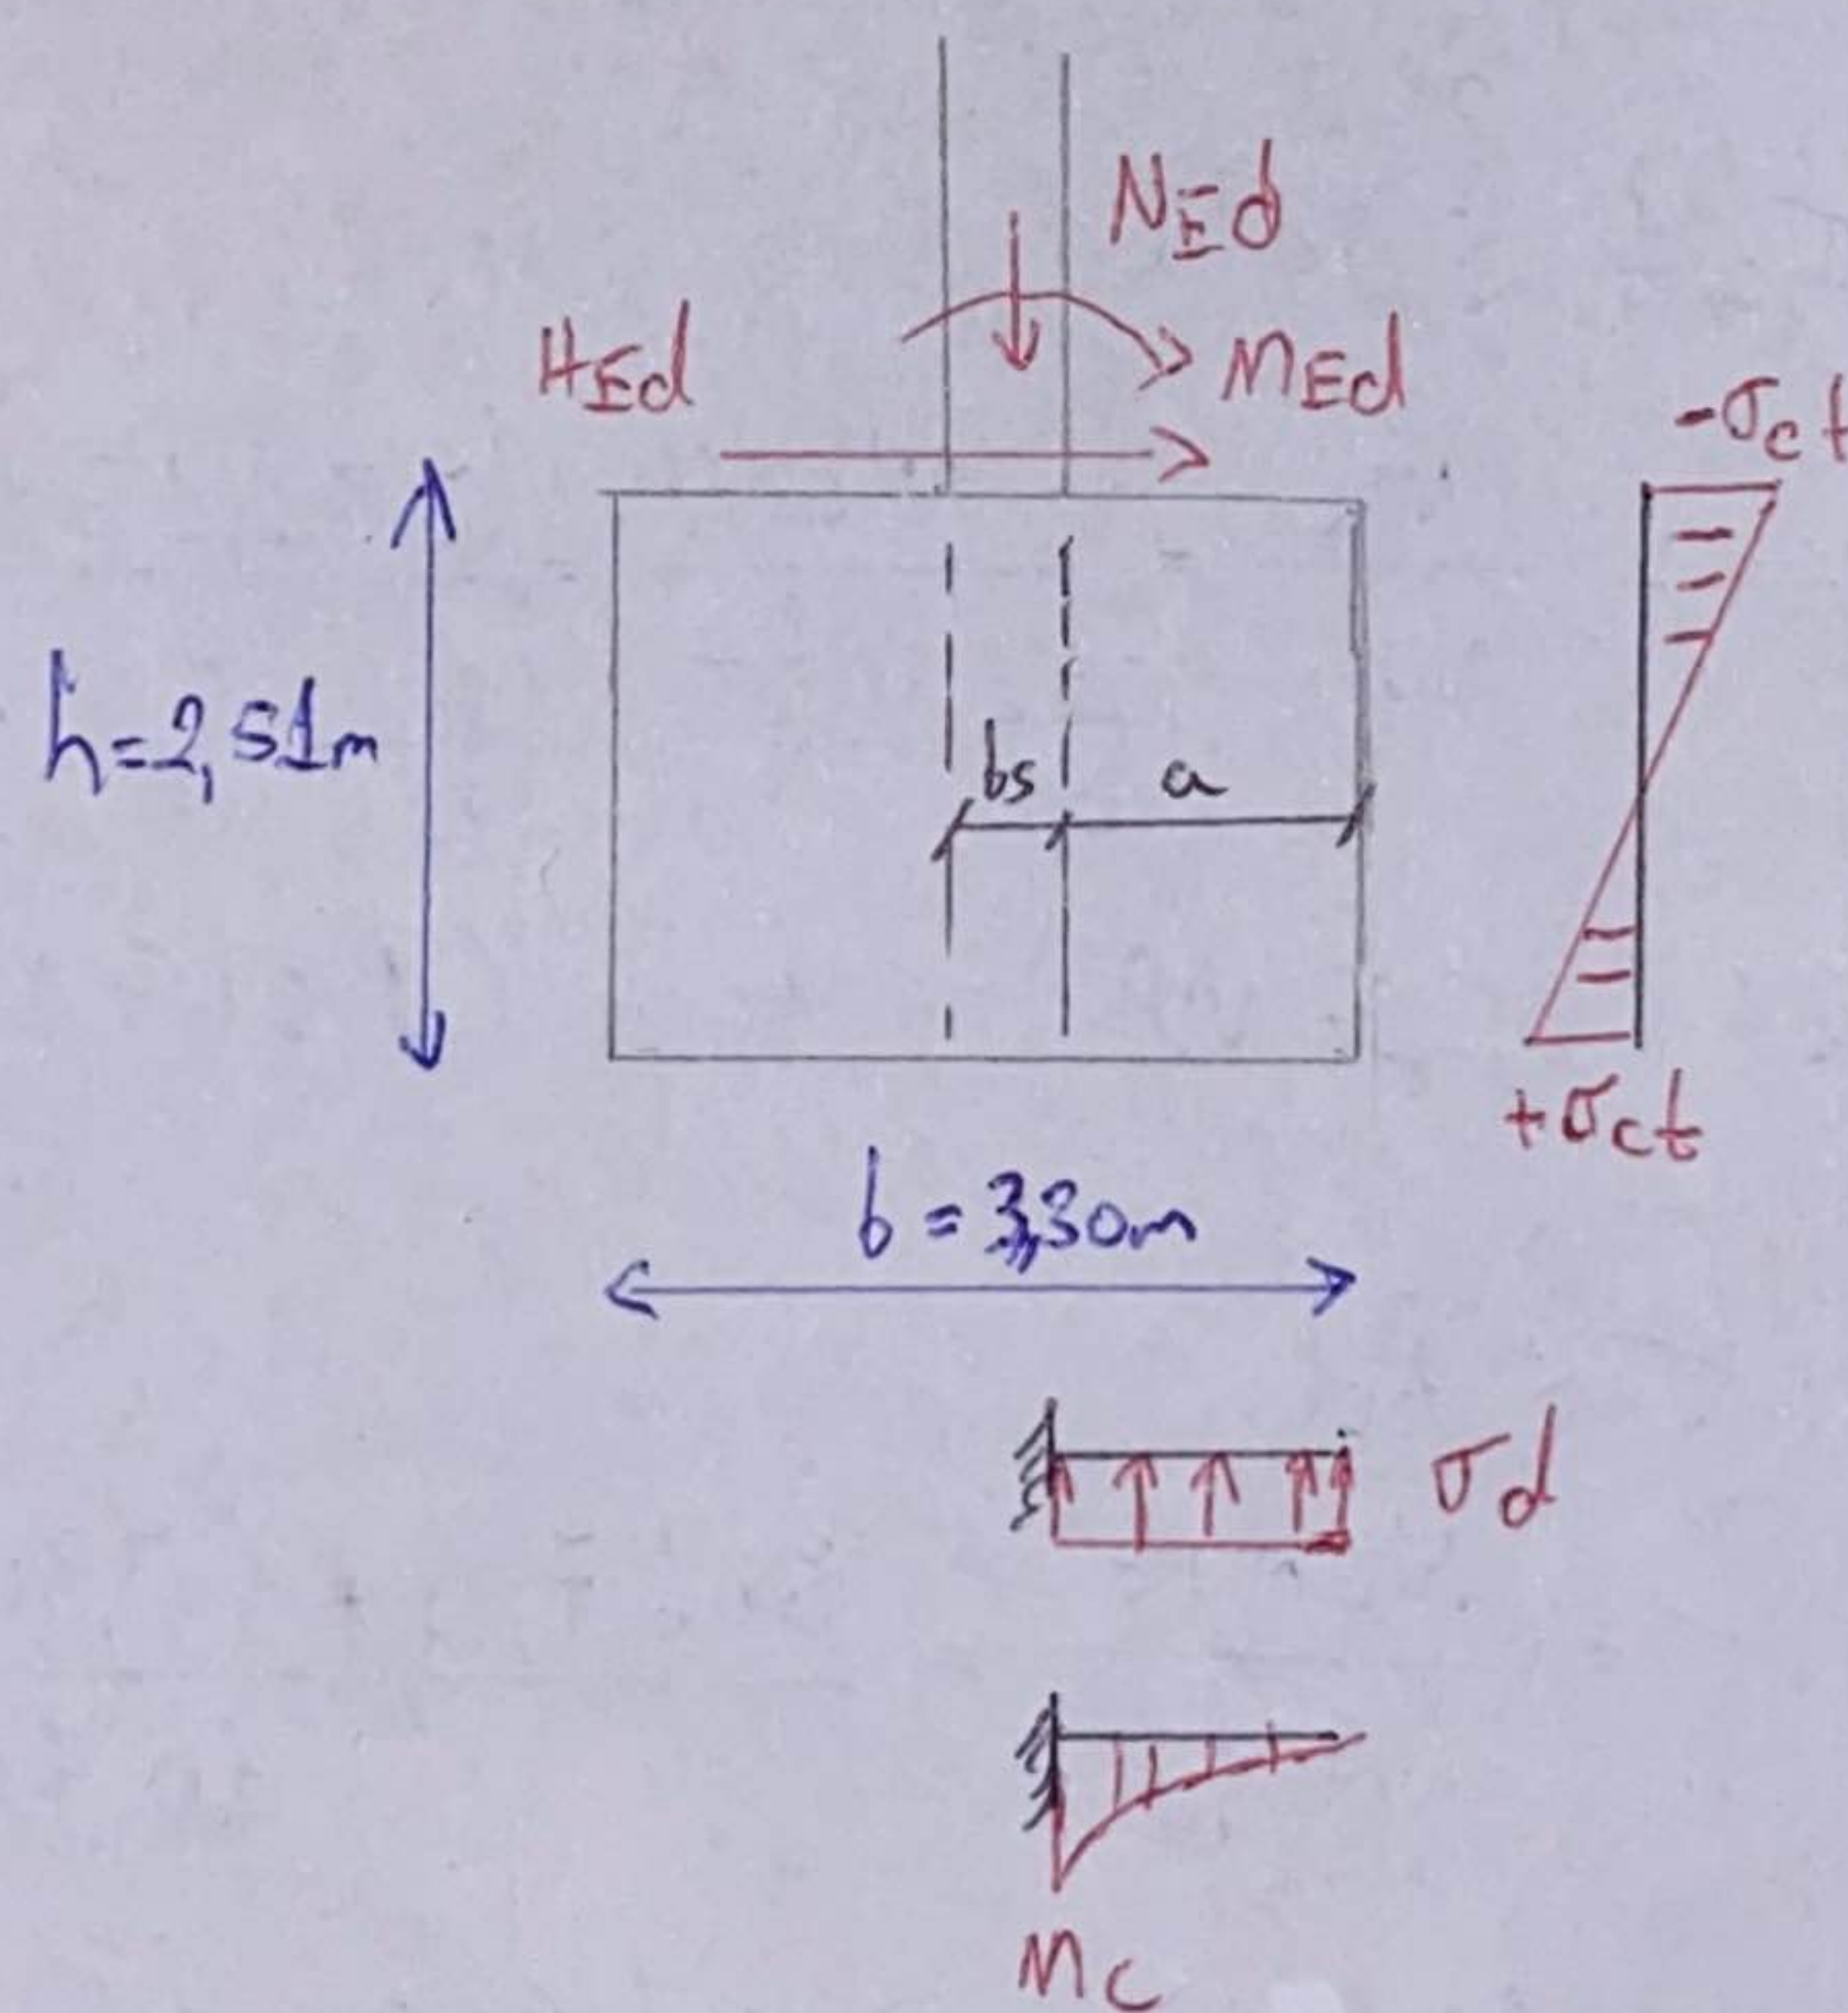 NEd
HEd
MEd
-σct
h=2,51m
bs
a
+σct
b = 3,30m
σd
Mc